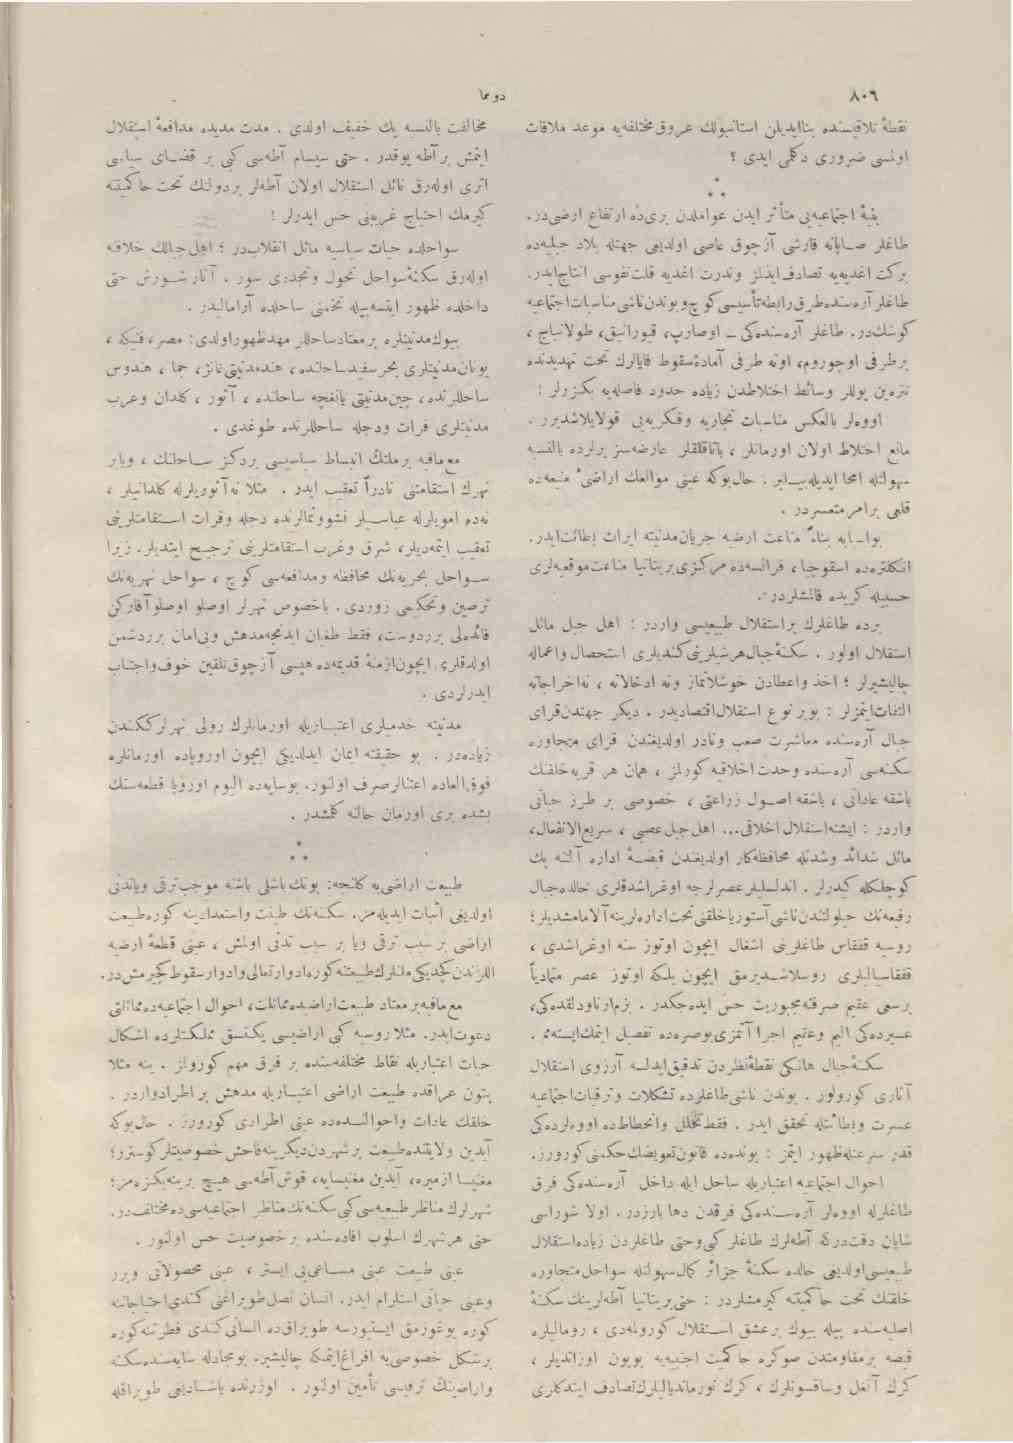 ٨٠٦
دوعا
نقطهٔ تلاقیسنده بناایدیلن استانبولك عروق مختلفه‌یه موعد ملاقات
اولمسی ضروری دکلمی ایدی ؟
بنیهٔ اجتماعیه‌یی متأثر ایدن عواملدن بری ده ارتفاع ارضی در.
طاغلر صاپانه قارشی آز چوق عاصی اولدیغی جهتله بلاد جبلیه‌ده
برکت اغدیه‌یه تصادف ایدلمز وندرت اغدیه قلت نفوسی انتاج ایدر.
طاغلر آره‌سنده طرق رابطه تأسیسی کوچ و بوندن ناشی مناسبات اجتماعیه
کوشك در. طاغلر آره‌سنده‌کی ـ اوصارپ، قیورانیق، طولانباج ،
بر طرفی اوچوروم، اوته طرفی آمادهٔ سقوط قایالرك تحت تهدیدنده
تتره‌ین یوللر وسائط اختلاطدن زیاده حدود فاصله‌یه بکزرلر :
اووه‌لر بالعکس مناسبات تجاریه و فکریه‌یی قولایلاشدیرر .
مانع اختلاط اولان اورمانلر ، باتاقلقلر عارضه‌سز یرلرده بالنسبه
سهولتله امحا ایدیله‌بیلیر. حال بوکه عینی موانعك اراضئ منیعه‌ده
قلعی بر امر متعسر در .
بواسبابه بناءً مناعت ارضیه جریان مدنیته ایراث بطائت ایدر.
انکلتره‌ده اسقوچیا ، فرانسه‌ده مرکزی بریتانیا مناعت موقعیه‌لری
حسبیله کریده قالمشلردر.
برده طاغلرك بر استقلال طبیعیسی واردر : اهل جبل مائل
استقلال اولور . سکنهٔ جبال هر شیلرینی کندیلری استحصال واعماله
چالیشیرلر ؛ اخذ واعطادن خوشلانماز ونه ادخالاته ، نه اخراجاته
التفات ایتمزلر : بو بر نوع استقلال اقتصادیدر . دیکر جهتدن قرای
جبال آره‌سنده معاشرت صعب ونادر اولدیغندن قرای متجاوره
سکنه‌سی آره‌سنده وحدت اخلاقیه کورلمز ، همان هر قریه خلقنك
باشقه عاداتی ، باشقه اصول زراعتی ، خصوصی بر طرز حیاتی
واردر : ایشته استقلال اخلاقی... اهل جبل عصبی ، سریع الانفعال،
مائل شدائد وشدتله محافظه‌کار اولدیغندن قبضهٔ اداره آلتنه پك
کوچلکله کیرلر . اندلسلیلر عصرلرجه اوغراشدقلری حالده جبال
رفیعه‌نك حیلولتندن ناشی آستوریا خلقنی تحت اداره‌لرینه آلامامشدیلر؛
روسیه قفقاس طاغلرینی اشغال ایچون اوتوز سنه اوغراشدی ،
قفقاسیالیلری روسلاشدیرمق ایچون بلکه اوتوز عصر متمادیاً
بر سعی عقیم صرفنه مجبوریت حس ایده جکدر . بزم ارناودلقده‌کی،
عسیرده‌کی الیم وعقیم اجرا آتمزی بوصره‌ده تفصیل ایتمك ایسته‌مم .
سکنهٔ جبال هانکی نقطهٔ نظردن تدقیق ایدلسه آرزوی استقلال
آثاری کورولور . بوندن ناشی طاغلرده تشکلات وترقیات اجتماعیه
عسرت وبطائتله تحقق ایدر . فقط تخلل وانحطاط ده اووه‌لرده‌کی
قدر سرعتله ظهور ایتمز : بونده‌ده قانون تعویضك حکمنی کورورز.
احوال اجتماعیه اعتباریله ساحل ایله داخل آره‌سنده‌کی فرق
طاغلرله اووه‌لر آره‌سنده‌کی فرقدن دها بارزدر. اولا شوراسی
شایان دقت درکه آطه‌لرك طاغلر کبی وحتی طاغلردن زیاده استقلال
طبیعیسی اولدیغی حالده سکنهٔ جزائر کمال سهولتله سواحل متجاوره
خلقنك تحت حاکمیتنه کیرمشلردر : حتی بریتانیا آطه‌لرینك سکنهٔ
اصلیه‌سنده بیله بیوك بر عشق استقلال کورولمدی ، رومالیلره
قیصه بر مقاومتدن صوکره حاکمیت اجنبیه‌یه بویون اوزاتدیلر ،
کرك آنغل وساقسونلرك ، کرك نورماندیالیلرك تصادف ایتدکلری
مخالفت بالنسبه پك خفیف اولدی . مدت مدیده مدافعهٔ استقلال
ایتمش بر آطه یوقدر . حتی سیسام آطه‌سی کبی بر قضای سیاسی
اثری اوله‌رق نائل استقلال اولان آطه‌لر بر دولتك تحت حاکمیتنه
کیرمك احتیاج غریبنی حس ایدرلر !
سواحلده حیات سیاسیه مائل انقلاب در ؛ اهل جبالك خلافنه
اوله‌رق سکنهٔ سواحل تحول وتجددی سور . آثار شورش حتی
داخلده ظهور ایتسه بیله تخمنی ساحلده آرامالیدر .
بیوك مدنیتلره بر معتاد ساحللر مهد ظهور اولدی: مصر، فنیکه ،
یونان مدنیتلری بحرسفید ساحلنده ، هند مدنیتی غانژ، جما ، هندوس
ساحللرنده ، چین مدنیتی یانغچه ساحلنده ، آثور ، کلدان وعرب
مدنیتلری فرات ودجله ساحللرنده طوغدی .
مع مافیه بر ملتك انبساط سیاسیسی بر دکز ساحلنك ، ویابر
نهرك استقامتنی نادراً تعقیب ایدر . مثلا نه آثوریلرله کلدانیلر ،
نه‌ده امویلرله عباسیلر نشوونمالرنده دجله وفرات استقامتلرینی
تعقیب ایتمه‌دیلر، شرق وغرب استقامتلرینی ترجیح ایتدیلر. زیرا
سواحل بحریه‌نك محافظه ومدافعه‌سی کوچ ، سواحل نهریه‌نك
ترصین وتحکیمی زوردی. باخصوص نهرلر اوصلو اوصلو آقارکن
فائده‌لی بر دوست، فقط طغیان ایدنجه مدهش وبی امان بر دشمن
اولدقلری ایچون ازمنهٔ قدیمه‌ده هپسی آز چوق تلقین خوف واجتناب
ایدرلردی .
مدنیته خدمتلری اعتباریله اورمانلرك رولی نهرلرککندن
زیاده‌در . بو حقیقته ایمان ایدلدیکی ایچون اوروپاده اورمانلره
فوق العاده اعتنالر صرف اولنور. بوسایه‌ده الیوم اوروپا قطعه‌سنك
بشده بری اورمان حالنه کلمشدر .
طبیعت اراضی‌یه کلنجه: بونك باشلی باشنه موجب ترقی ویاتدنی
اولدیغی اثبات ایدیله‌مز. سکنه‌نك طینت واستعدادینه کوره طبیعت
اراضی بر سبب ترقی ویا بر سبب تدنی اولمش ، عینی قطعهٔ ارضیه
اللرندن کچدیکی ملتلرك طبیعتنه کوره ادوار تعالی وادوار سقوط کچیرمش در.
مع مافیه بر معتاد طبیعت اراضیده مماثلت، احوال اجتماعیه‌ده مماثلتی
دعوت ایدر. مثلا روسیه کبی اراضیسی یکنسق مملکتلرده اشکال
حیات اعتباریله نقاط مختلفه‌سنده بر فرق مهم کورولمز . ینه مثلا
بتون عراقده طبیعت اراضی اعتباریله مدهش بر اطراد واردر .
خلقك عادات واحوالنده‌ده عینی اطرادی کورورز . حال بوکه
آیدین ولایتنده طبیعت بر شهردن دیکرینه فاحش خصوصیتلر کوسترر؛
مغنیسا ازمیره، آیدین مغنیسایه، قوش آطه‌سی هیچ برینه بکزه‌مز؛
شهرلرك مناظر طبیعیه‌سی کبی سکنه‌نك مناظر اجتماعیه‌سی ده مختلف در.
حتی هر شهرك اسلوب افاده‌سنده بر خصوصیت حس اولنور .
عینی طبیعت عینی مساعی‌یی ایستر ، عینی محصولاتی ویرر
وعینی حیاتی استلزام ایدر. انسان نصل طوپراغنی کندی احتیاجاتنه
کوره یوغورمق ایستیورسه طوپراق ده انسانی کندی فطرتنه کوره
بر شکل خصوصی‌یه افراغ ایتمکه چالیشیر. بومجادله سایه‌سنده سکنه
واراضینك تربیسی تأمین اولنور . اوزرنده یاشادیغی طوپراقله